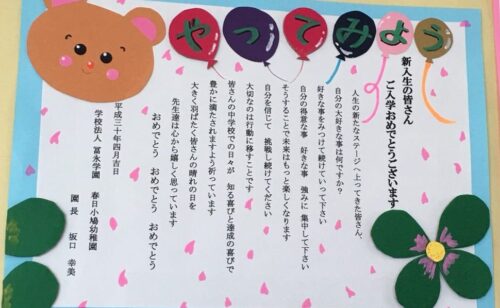 やってみよう
新入生の皆さん
ご入学おめでとうございます
人生の新たなステージへ上ってきた皆さん、
自分の大好きな事は何ですか?
好きな事をみつけて続けていって下さい
自分の得意な事 好きな事 強みに 集中して下さい
そうすることで未来はもっと楽しくなります
自分を信じて 挑戦し続けてください
大切なのは行動に移すことです
皆さんの中学校での日々が 知る喜びと達成の喜びで
豊かに満たされますよう祈っています
大きく羽ばたく皆さんの晴れの日を
先生達は心から嬉しく思っています
おめでとう おめでとう おめでとう
平成三十年四月吉日
学校法人 冨永学園 春日小鳩幼稚園
園長 坂口 幸美